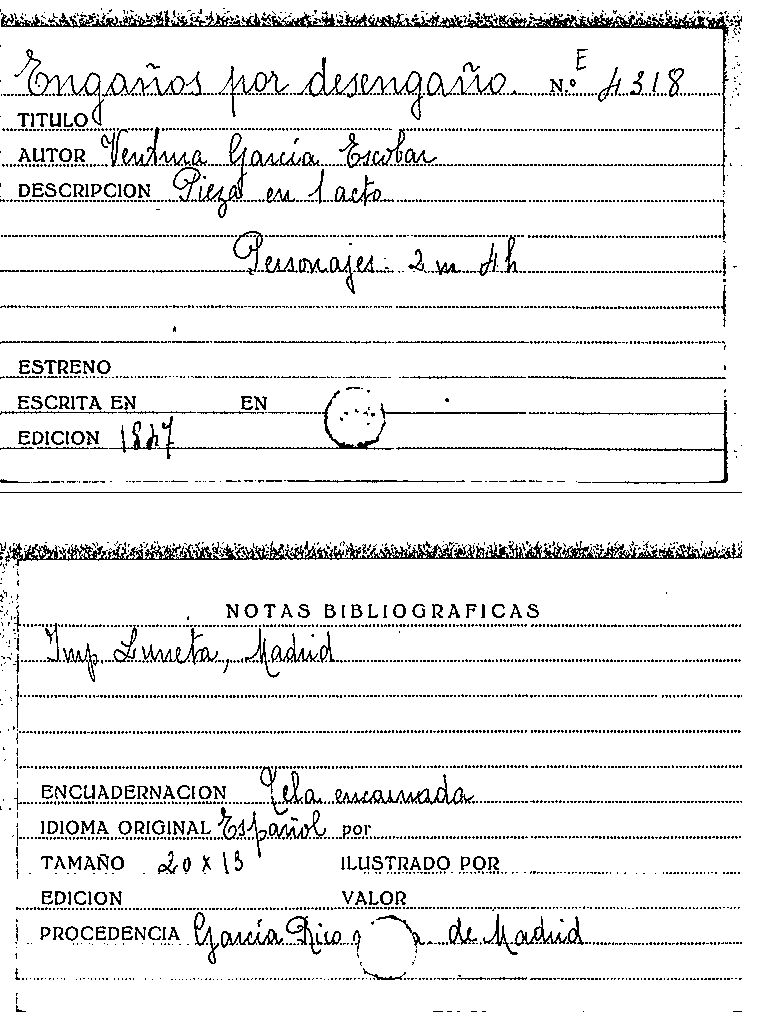 Engaños por desengaño. N.º E 4318
TITULO
AUTOR Ventura García Escobar
DESCRIPCION Pieza en 1 acto
Personajes: 2 m 4 h
ESTRENO
ESCRITA EN EN
EDICION 1847
NOTAS BIBLIOGRAFICAS
Imp. Luneta, Madrid
ENCUADERNACION Tela encarnada
IDIOMA ORIGINAL Español por
TAMAÑO 20 x 13 ILUSTRADO POR
EDICION VALOR
PROCEDENCIA García Rico de Madrid